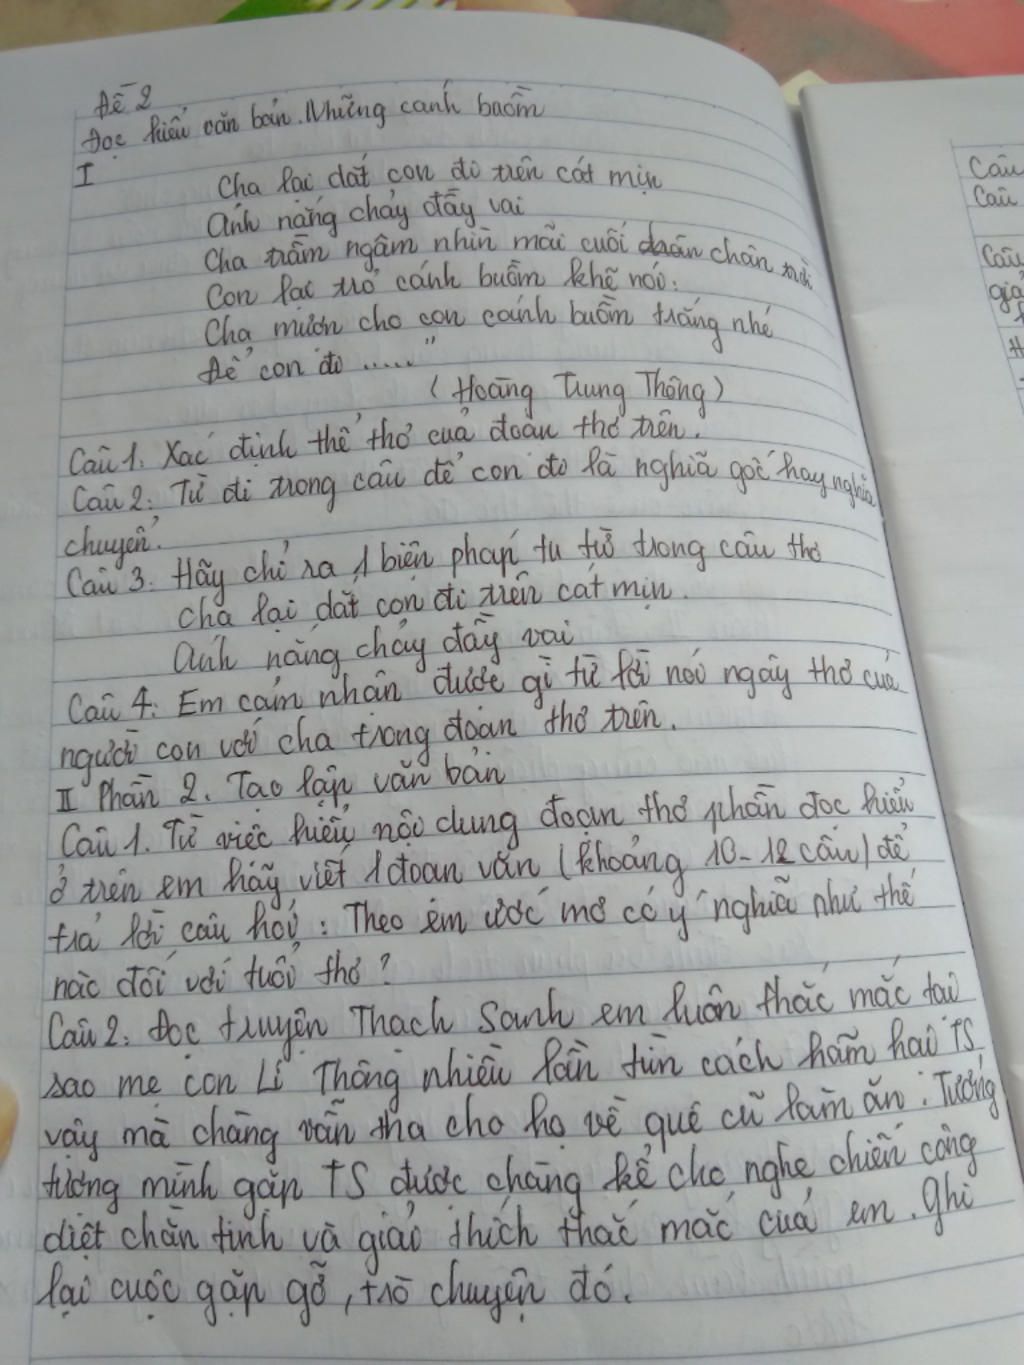 Đề 2
Đọc hiểu văn bản. Những cánh buồm
I
Cha lại dắt con đi trên cát mịn
Ánh nắng chảy đầy vai
Cha trầm ngâm nhìn mãi cuối chân trời
Con lại trỏ cánh buồm khẽ nói:
Cha mượn cho con cánh buồm trắng nhé
Để con đi ....."
(Hoàng Trung Thông)
Câu 1. Xác định thể thơ của đoạn thơ trên.
Câu 2: Từ đi trong câu để con đi là nghĩa gốc hay nghĩa
chuyển.
Câu 3: Hãy chỉ ra 1 biện pháp tu từ trong câu thơ
Cha lại dắt con đi trên cát mịn.
Ánh nắng chảy đầy vai
Câu 4: Em cảm nhận được gì từ lời nói ngây thơ của
người con với cha trong đoạn thơ trên.
II Phần 2. Tạo lập văn bản
Câu 1. Từ việc hiểu nội dung đoạn thơ phần đọc hiểu
ở trên em hãy viết 1 đoạn văn (khoảng 10-12 câu) để
trả lời câu hỏi: Theo em ước mơ có ý nghĩa như thế
nào đối với tuổi thơ?
Câu 2: Đọc truyện Thạch Sanh em luôn thắc mắc tại
sao mẹ con Lí Thông nhiều lần tìm cách hãm hại TS
vậy mà chàng vẫn tha cho họ về quê cũ làm ăn. Tưởng
tượng mình gặp TS được chàng kể cho nghe chiến công
diệt chằn tinh và giải thích thắc mắc của em. Ghi
lại cuộc gặp gỡ, trò chuyện đó.
Câu
Câu
Câu
giả